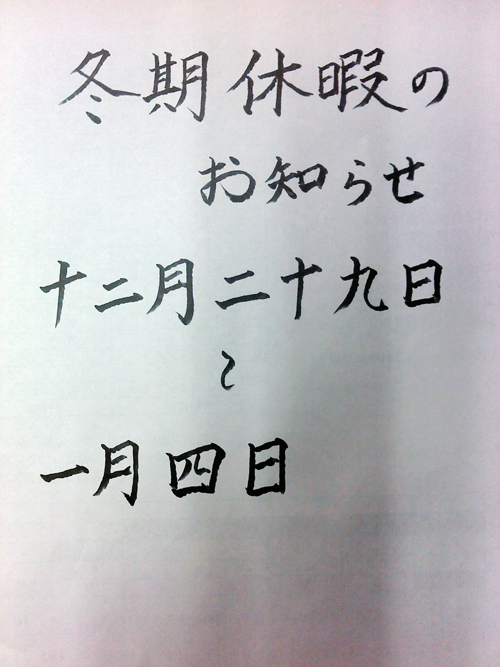 冬期休暇の
お知らせ
十二月二十九日
〜
一月四日